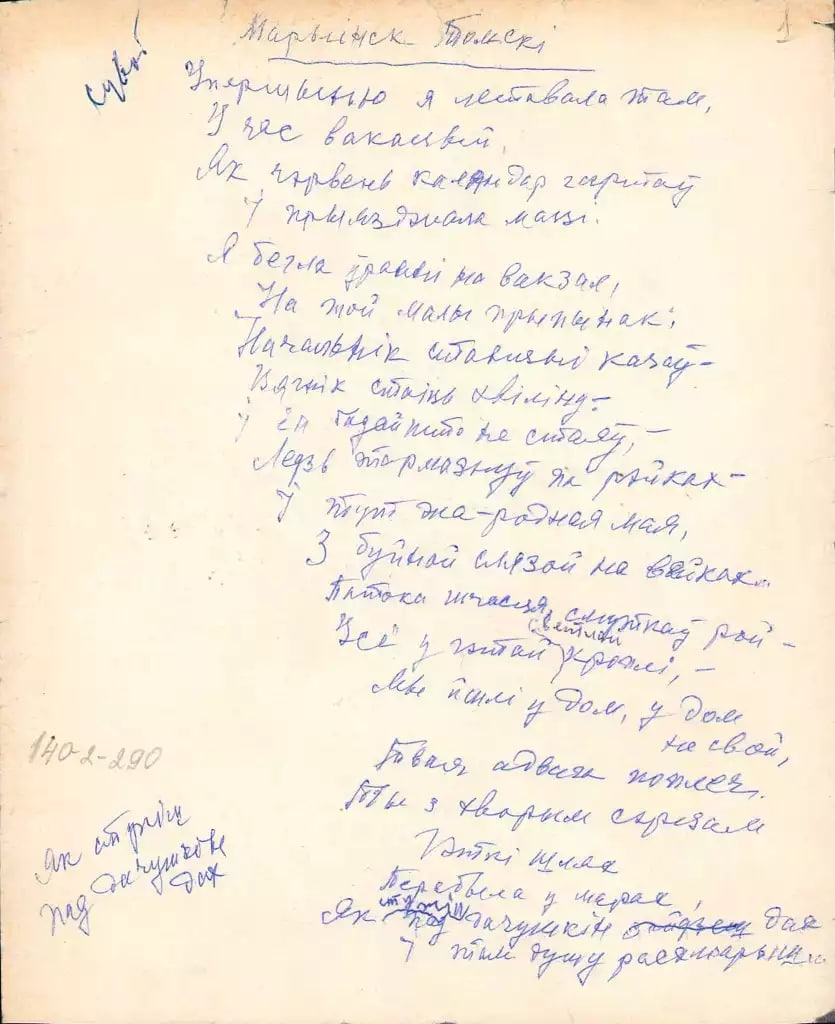 Марыінск Томскі
1
Упершыню я летавала там,
У час вакацый,
Як чэрвень каляндар гартаў
І прыязджала маці.
Я бегла ўранні на вакзал,
На той малы прыпынак:
Начальнік станцыі казаў –
Цягнік стаіць хвіліну –
І ён бадай што не стаяў, –
Ледзь тармазнуў на рэйках –
І тут жа – родная мая,
З буйной слязой на вейках...
Патока шчасця, смуткаў рой –
светлай
Усё у гэтай кроплі, –
Мы йшлі у дом, у дом
не свой,
Ты з хворым сэрцам
Гэткі шлях
Перабыла у марах,
стрэць
Як пад дачушкін дах
І тым душу
140-2-290
Як стрэць
дачушкове
пад дах